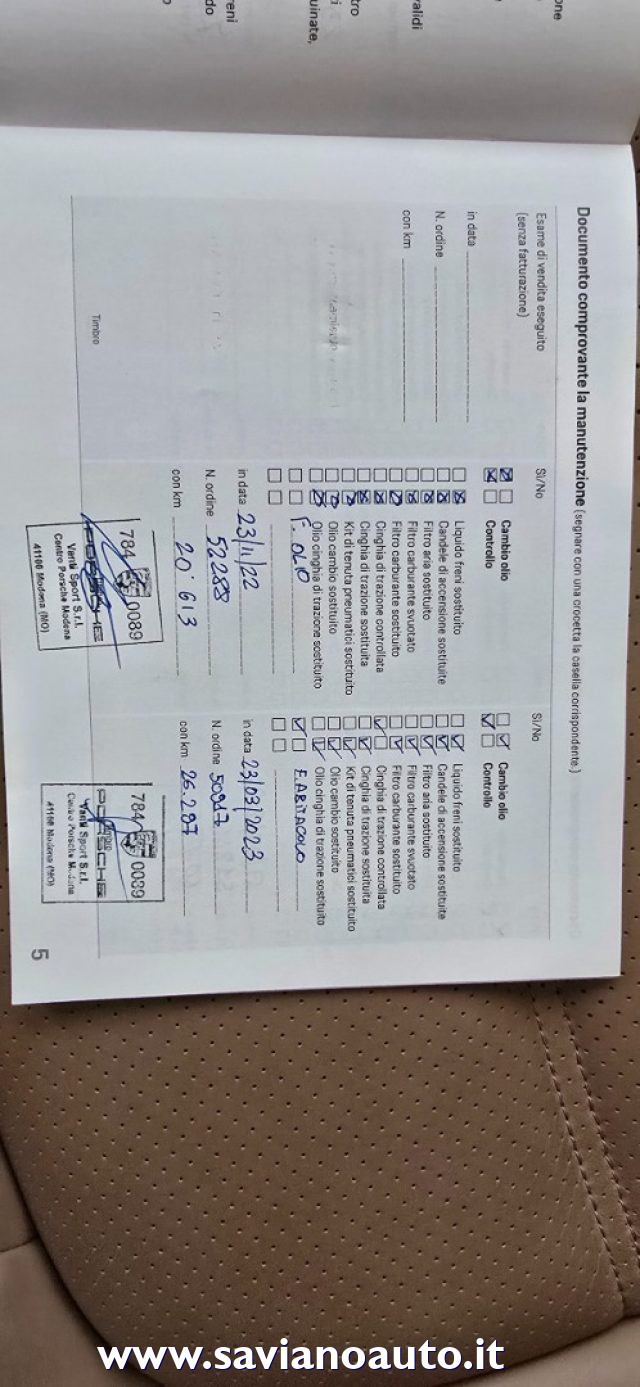 one
validi
tro
i
uinate,
reni
do
Documento comprovante la manutenzione (segnare con una crocetta la casella corrispondente.)
Esame di vendita eseguito
(senza fatturazione)
in data
N. ordine
con km
Timbro
Sì/No
Cambio olio
Controllo
Liquido freni sostituito
Candele di accensione sostituite
Filtro aria sostituito
Filtro carburante svuotato
Filtro carburante sostituito
Cinghia di trazione controllata
Cinghia di trazione sostituita
Kit di tenuta pneumatici sostituito
Olio cambio sostituito
Olio cinghia di trazione sostituito
F. OLIO
in data 23/11/22
N. ordine 52283
con km 20.613
784 0089
PORSCHE
Venti Sport S.r.l.
Centro Porsche Modena
41100 Modena (MO)
Sì/No
Cambio olio
Controllo
Liquido freni sostituito
Candele di accensione sostituite
Filtro aria sostituito
Filtro carburante svuotato
Filtro carburante sostituito
Cinghia di trazione controllata
Cinghia di trazione sostituita
Kit di tenuta pneumatici sostituito
Olio cambio sostituito
Olio cinghia di trazione sostituito
F. ABITACOLO
in data 23/03/2023
N. ordine 50917
con km 26.297
784 0089
PORSCHE
Sport S.r.l.
Centro Porsche Modena
41100 Modena (MO)
5
www.savianoauto.it